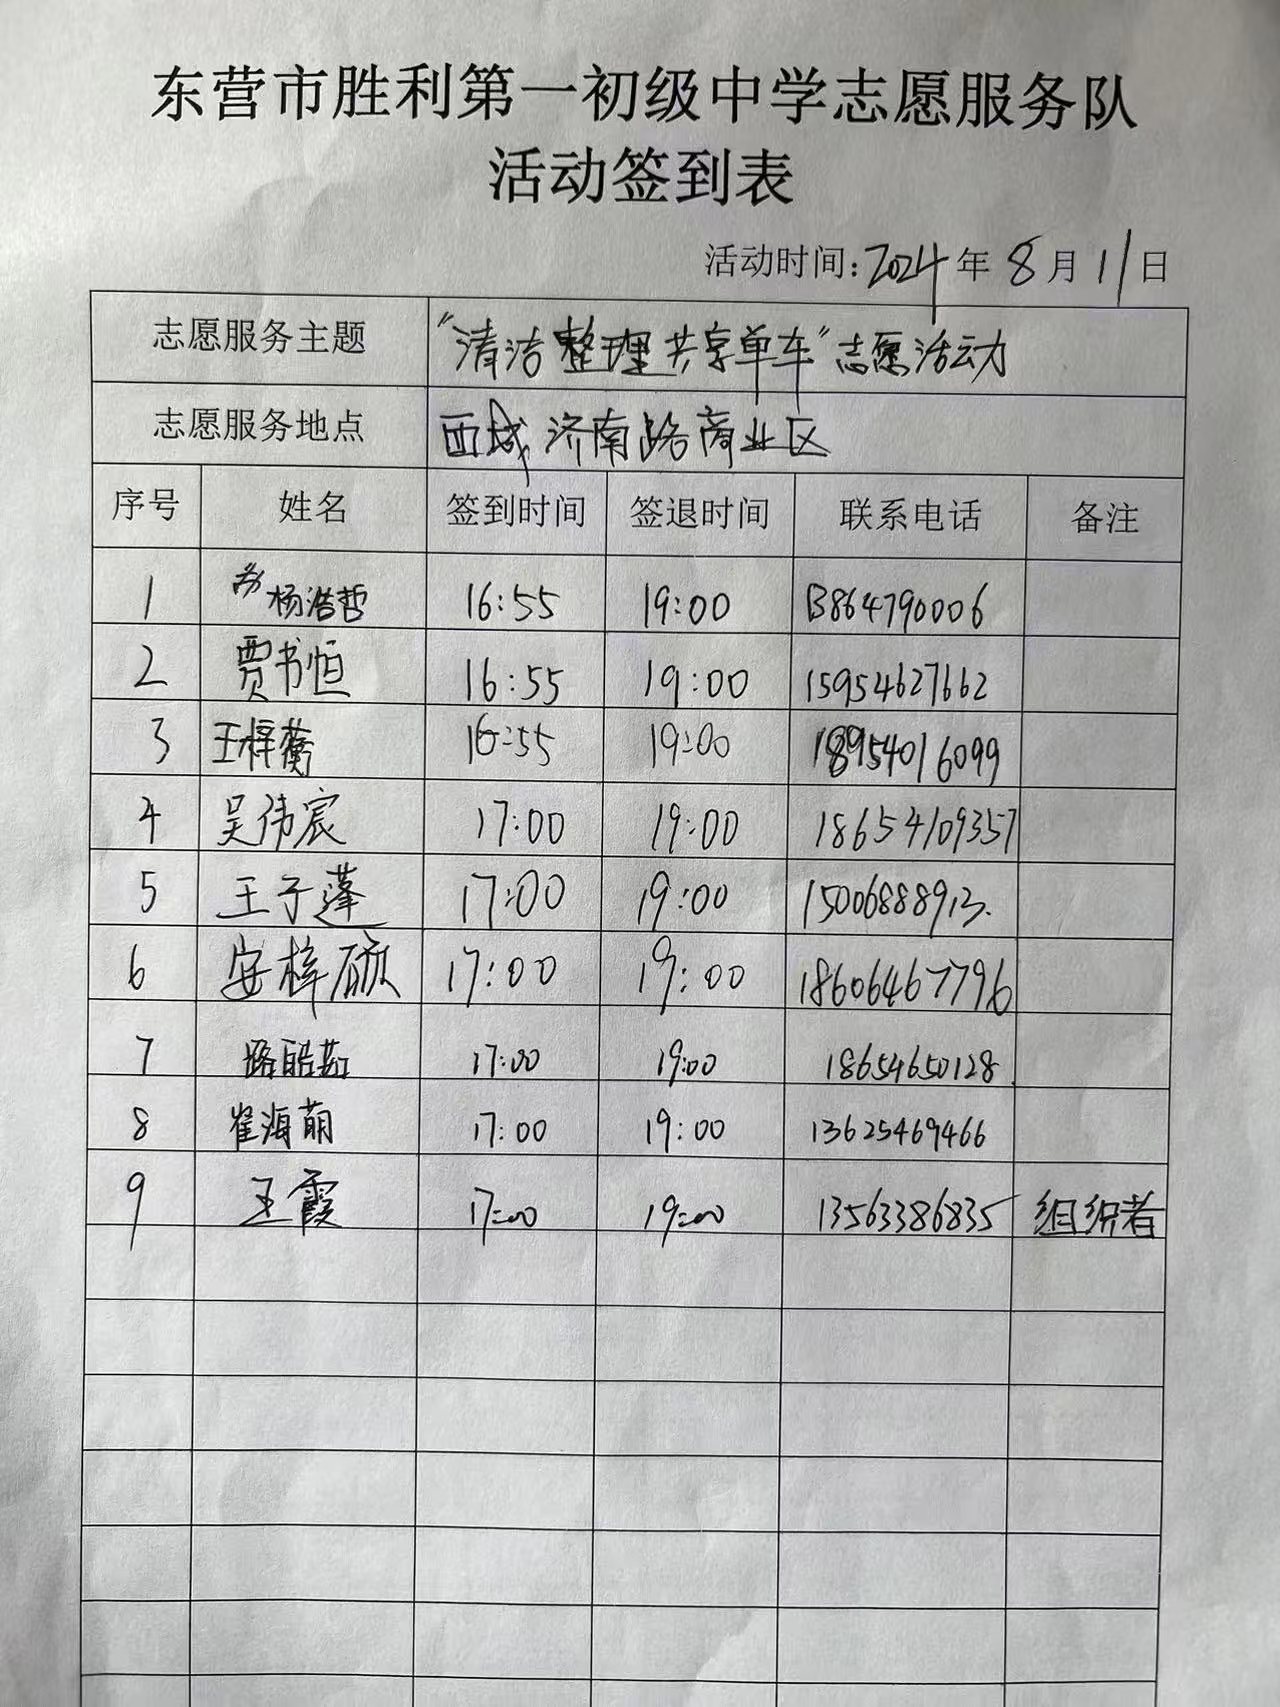 东营市胜利第一初级中学志愿服务队
活动签到表
活动时间:2024年8月11日
志愿服务主题 "清洁整理共享单车"志愿活动
志愿服务地点 西城济南路商业区
序号 姓名 签到时间 签退时间 联系电话 备注
1 杨浩哲 16:55 19:00 13864790006
2 贾书恒 16:55 19:00 15954627662
3 王梓蘅 16:55 19:00 18954016099
4 吴伟宸 17:00 19:00 18654109357
5 王子蓬 17:00 19:00 15006888913.
6 安梓硕 17:00 19:00 18606467796
7 17:00 19:00 18654650128
8 崔海萌 17:00 19:00 13625469466
9 王霞 17:00 19:00 13563386835 组织者